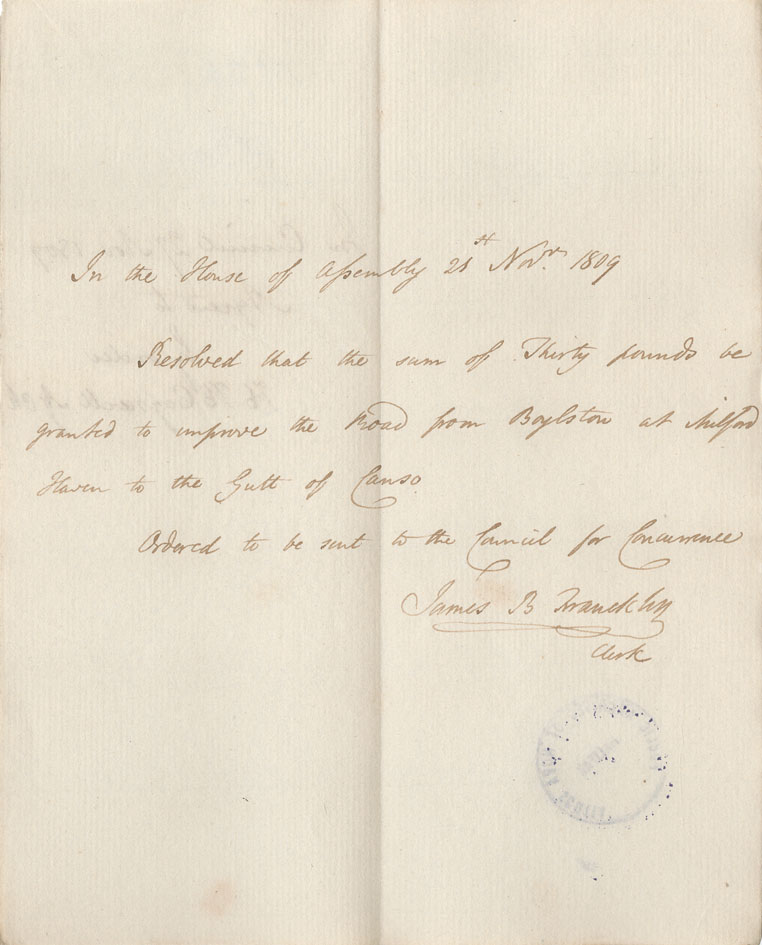 In the House of Assembly 25th Novr. 1809
Resolved that the sum of Thirty pounds be
granted to improve the Road from Boylston at Milford
Haven to the Gutt of Canso
Ordered to be sent to the Council for Concurrence
James B Francklin
Clerk